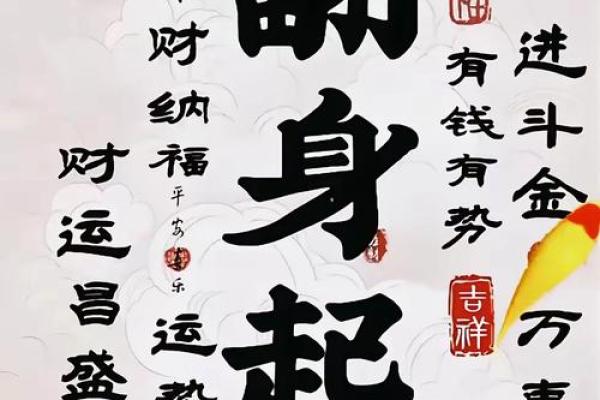 进斗金
万事
福
有钱有势
吉祥
翻身起
财纳福
平安喜乐
运势
财运昌盛